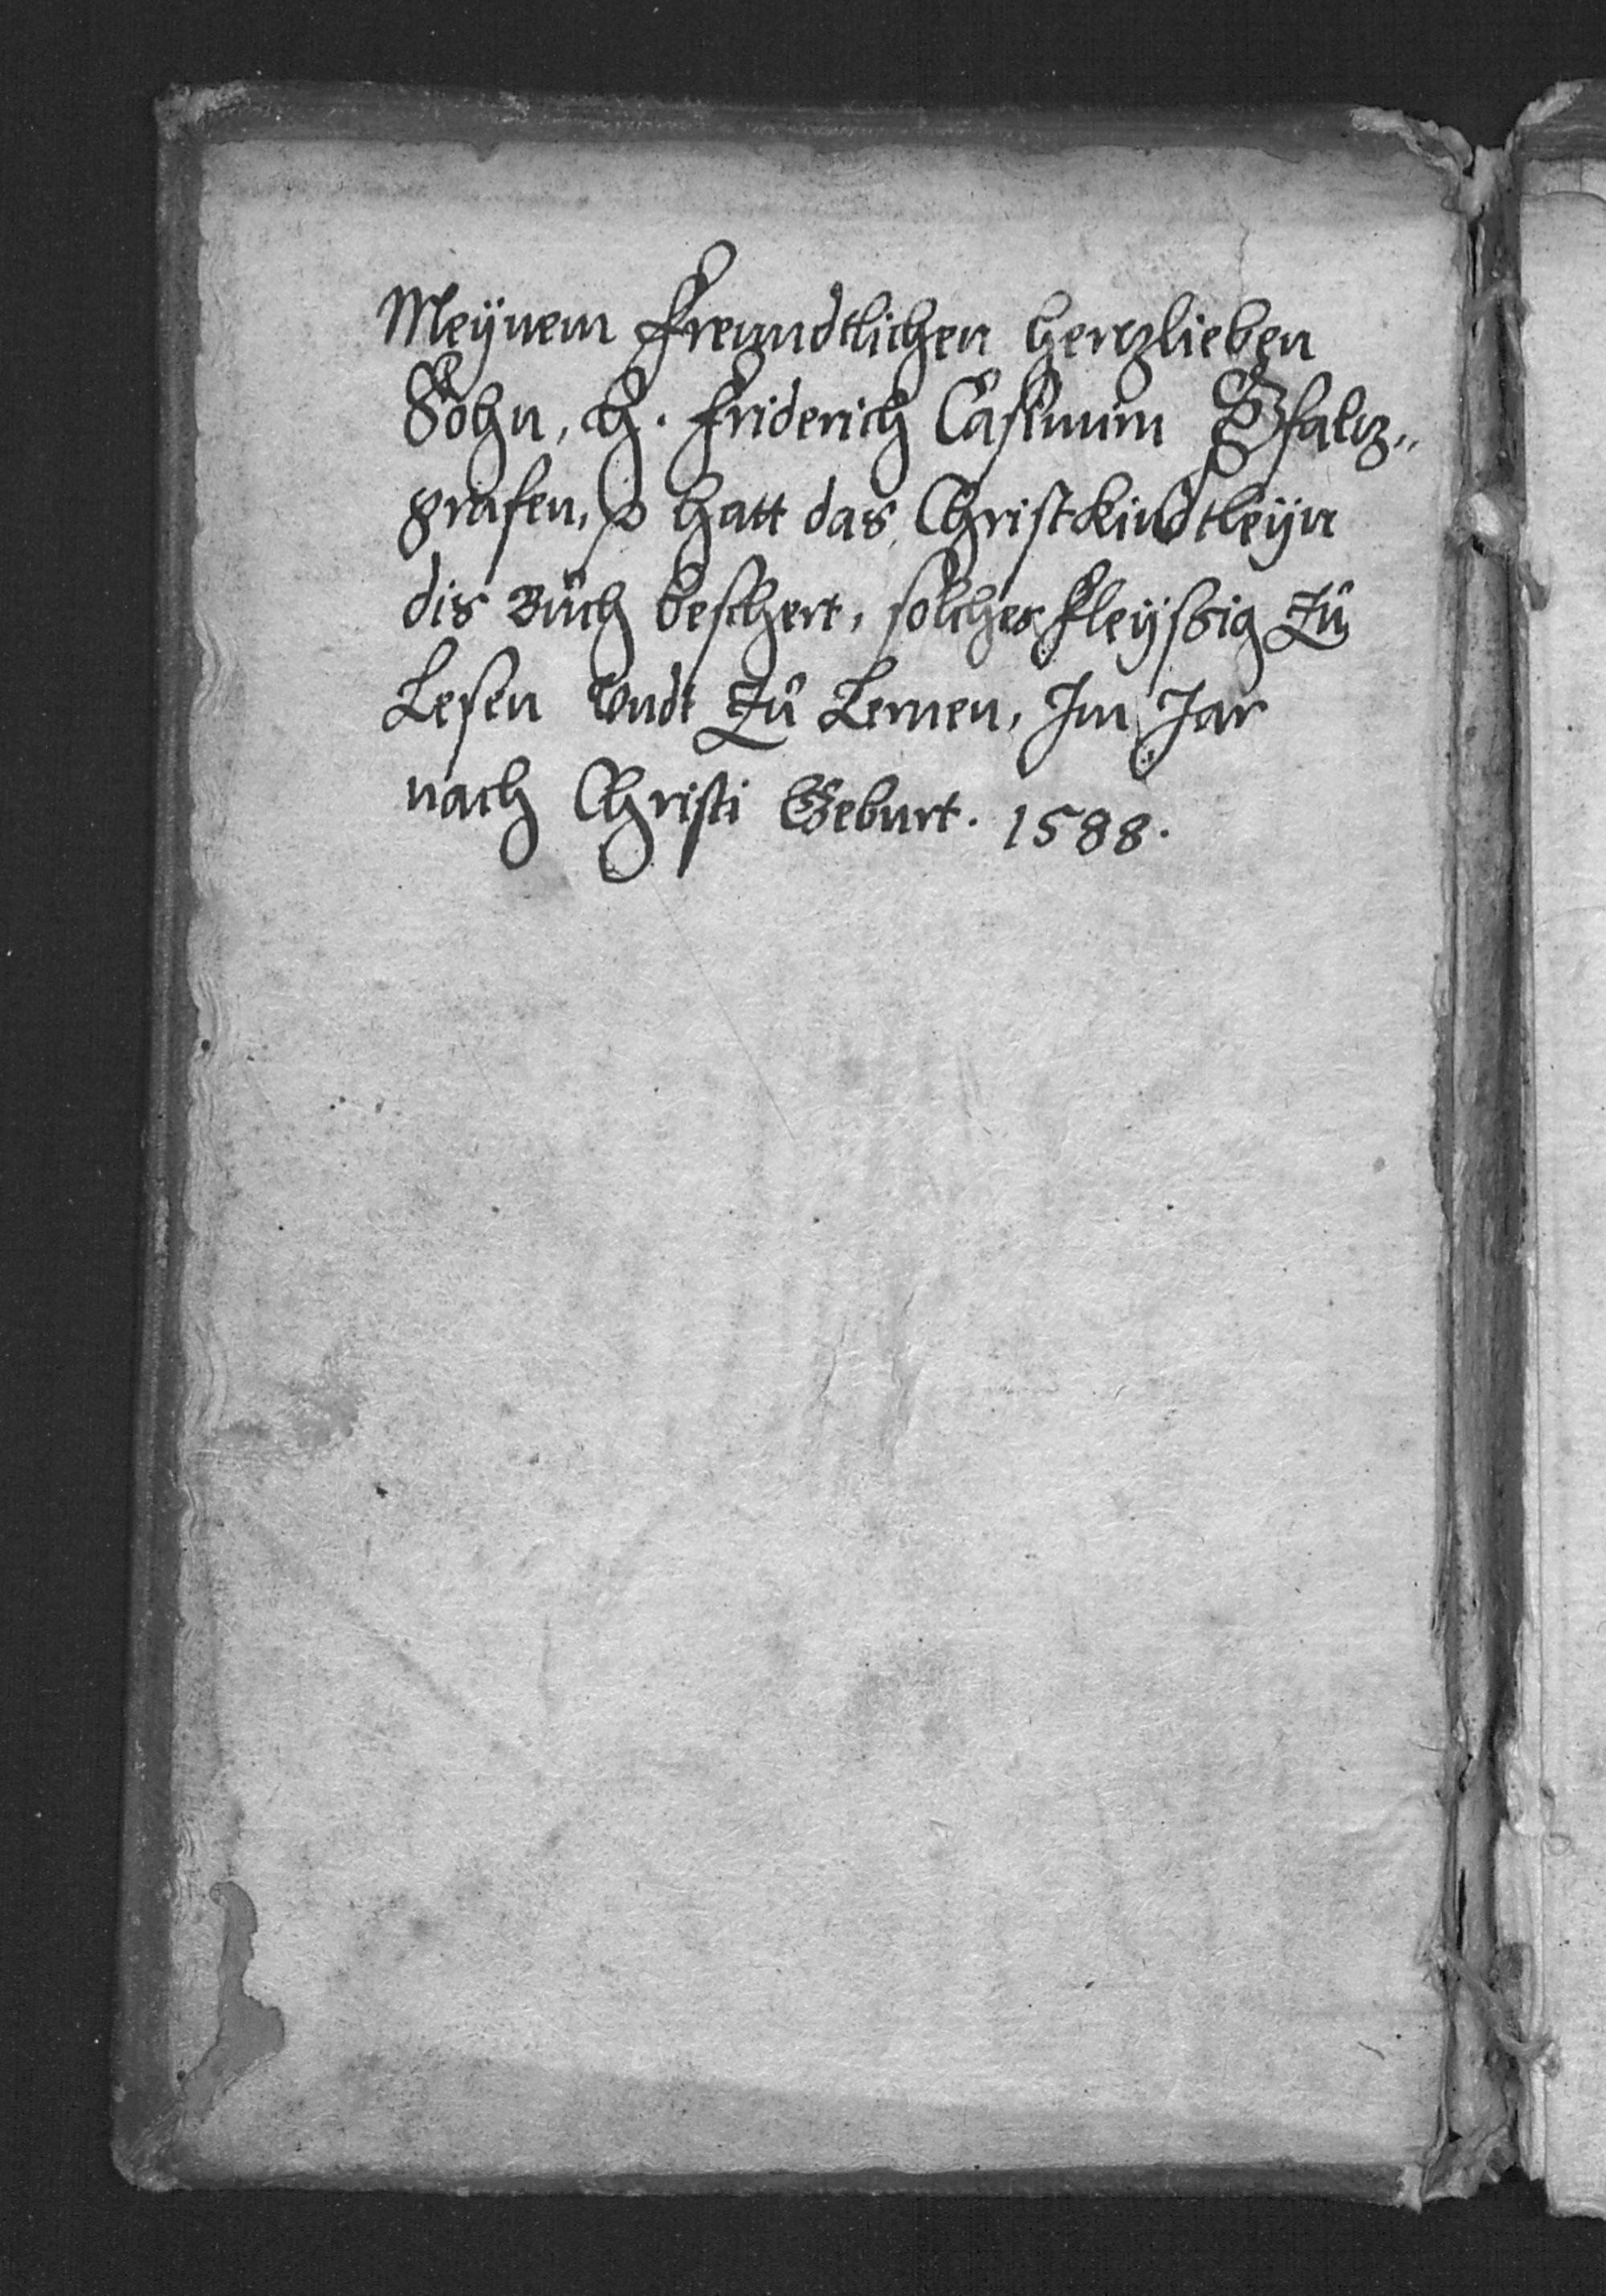 Meÿnem freundtlichen herzlieben
Sohn, H. Friderich Casimirn Pfaltz„
grafen, hatt das Christkindtleÿn
dis Büch beschert, solches fleÿssig Zů
Lesen Vndt Zů Lernen, Im Jar
nach Christi Geburt. 1588.